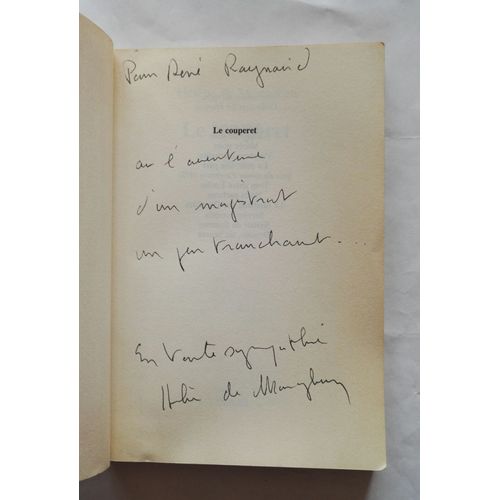 Pour René Raynaud
Le couperet
ou l'aventure
d'un magistrat
un peu tranchant...
En toute sympathie
Hélie de